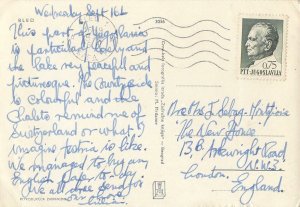 Wednesday Sept 16th
BLED
This part of Yugoslavia
is particularly lovely and
the lake very peaceful and
picturesque. The countryside
is colourful and the
Chalets remind me of
Switzerland or what I
imagine Austria is like.
We managed to buy an
English Paper to-day.
We all send
our love
0.75
PTT-JUGOSLAVIJA
The New House
Arkwright Road
N.W.3.
London.
England.